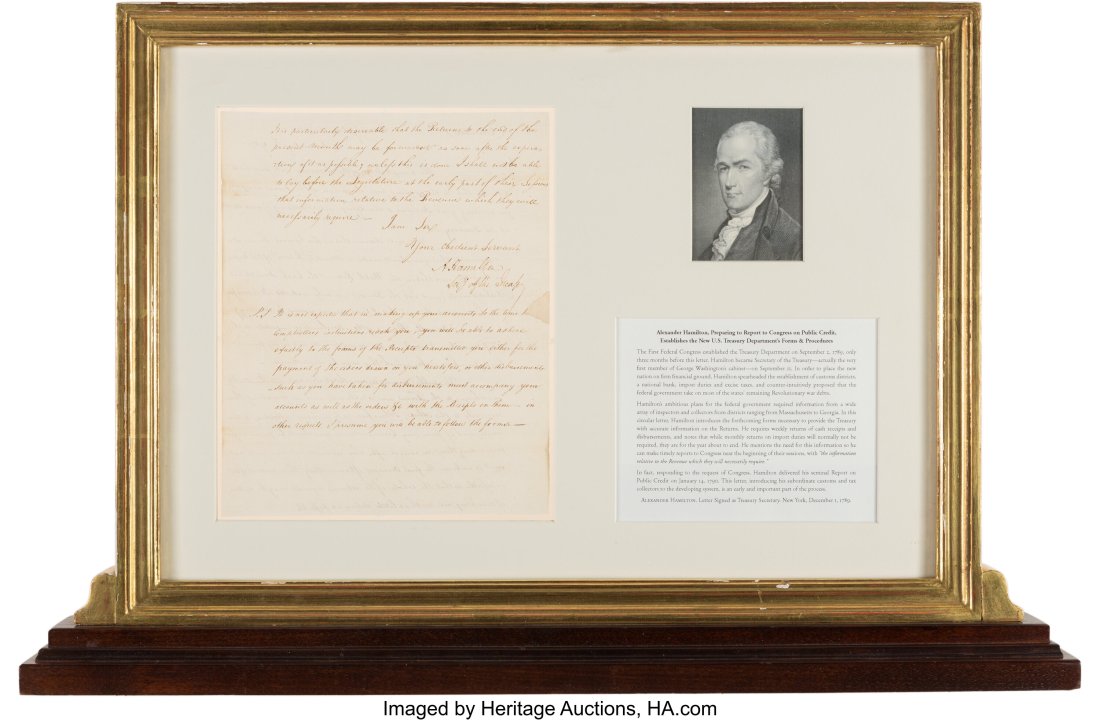 It is particularly desireable that the Returns to the end of the
present month may be forwarded as soon after the expira-
tion of it as possible; unless this is done I shall not be able
to lay before the Legislature at the early part of their Session
that information relative to the Revenue which they will
necessarily require —
I am Sir
Your Obedient Servant
A Hamilton
Secy of the Treasy
PS It is not expected that in making up your accounts to the time
these instructions reach you, you will be able to adhere
exactly to the forms of the Receipts transmitted you either for the
payment of the orders drawn on you
such as you have taken for disbursements must accompany your
accounts as well as the orders &c with the Receipts on them — in
other respects I presume you will be able to follow the forms —
Alexander Hamilton, Preparing to Report to Congress on Public Credit,
Establishes the New U.S. Treasury Department's Forms & Procedures
The First Federal Congress established the Treasury Department on September 2, 1789, only
three months before this letter. Hamilton became Secretary of the Treasury—actually the very
first member of George Washington's cabinet—on September 11. In order to place the new
nation on firm financial ground, Hamilton spearheaded the establishment of customs districts,
a national bank, import duties and excise taxes, and counter-intuitively proposed that the
federal government take on most of the states' remaining Revolutionary war debts.
Hamilton's ambitious plans for the federal government required information from a wide
array of inspectors and collectors from districts ranging from Massachusetts to Georgia. In this
circular letter, Hamilton introduces the forthcoming forms necessary to provide the Treasury
with accurate information on the Returns. He requires weekly returns of cash receipts and
disbursements, and notes that while monthly returns on import duties will normally not be
required, they are for the year about to end. He mentions the need for this information so he
can make timely reports to Congress near the beginning of their sessions, with "the information
relative to the Revenue which they will necessarily require."
In fact, responding to the request of Congress, Hamilton delivered his seminal Report on
Public Credit on January 14, 1790. This letter, introducing his subordinate customs and tax
collectors to the developing system, is an early and important part of the process.
ALEXANDER HAMILTON. Letter Signed as Treasury Secretary. New York, December 1, 1789.
Imaged by Heritage Auctions, HA.com